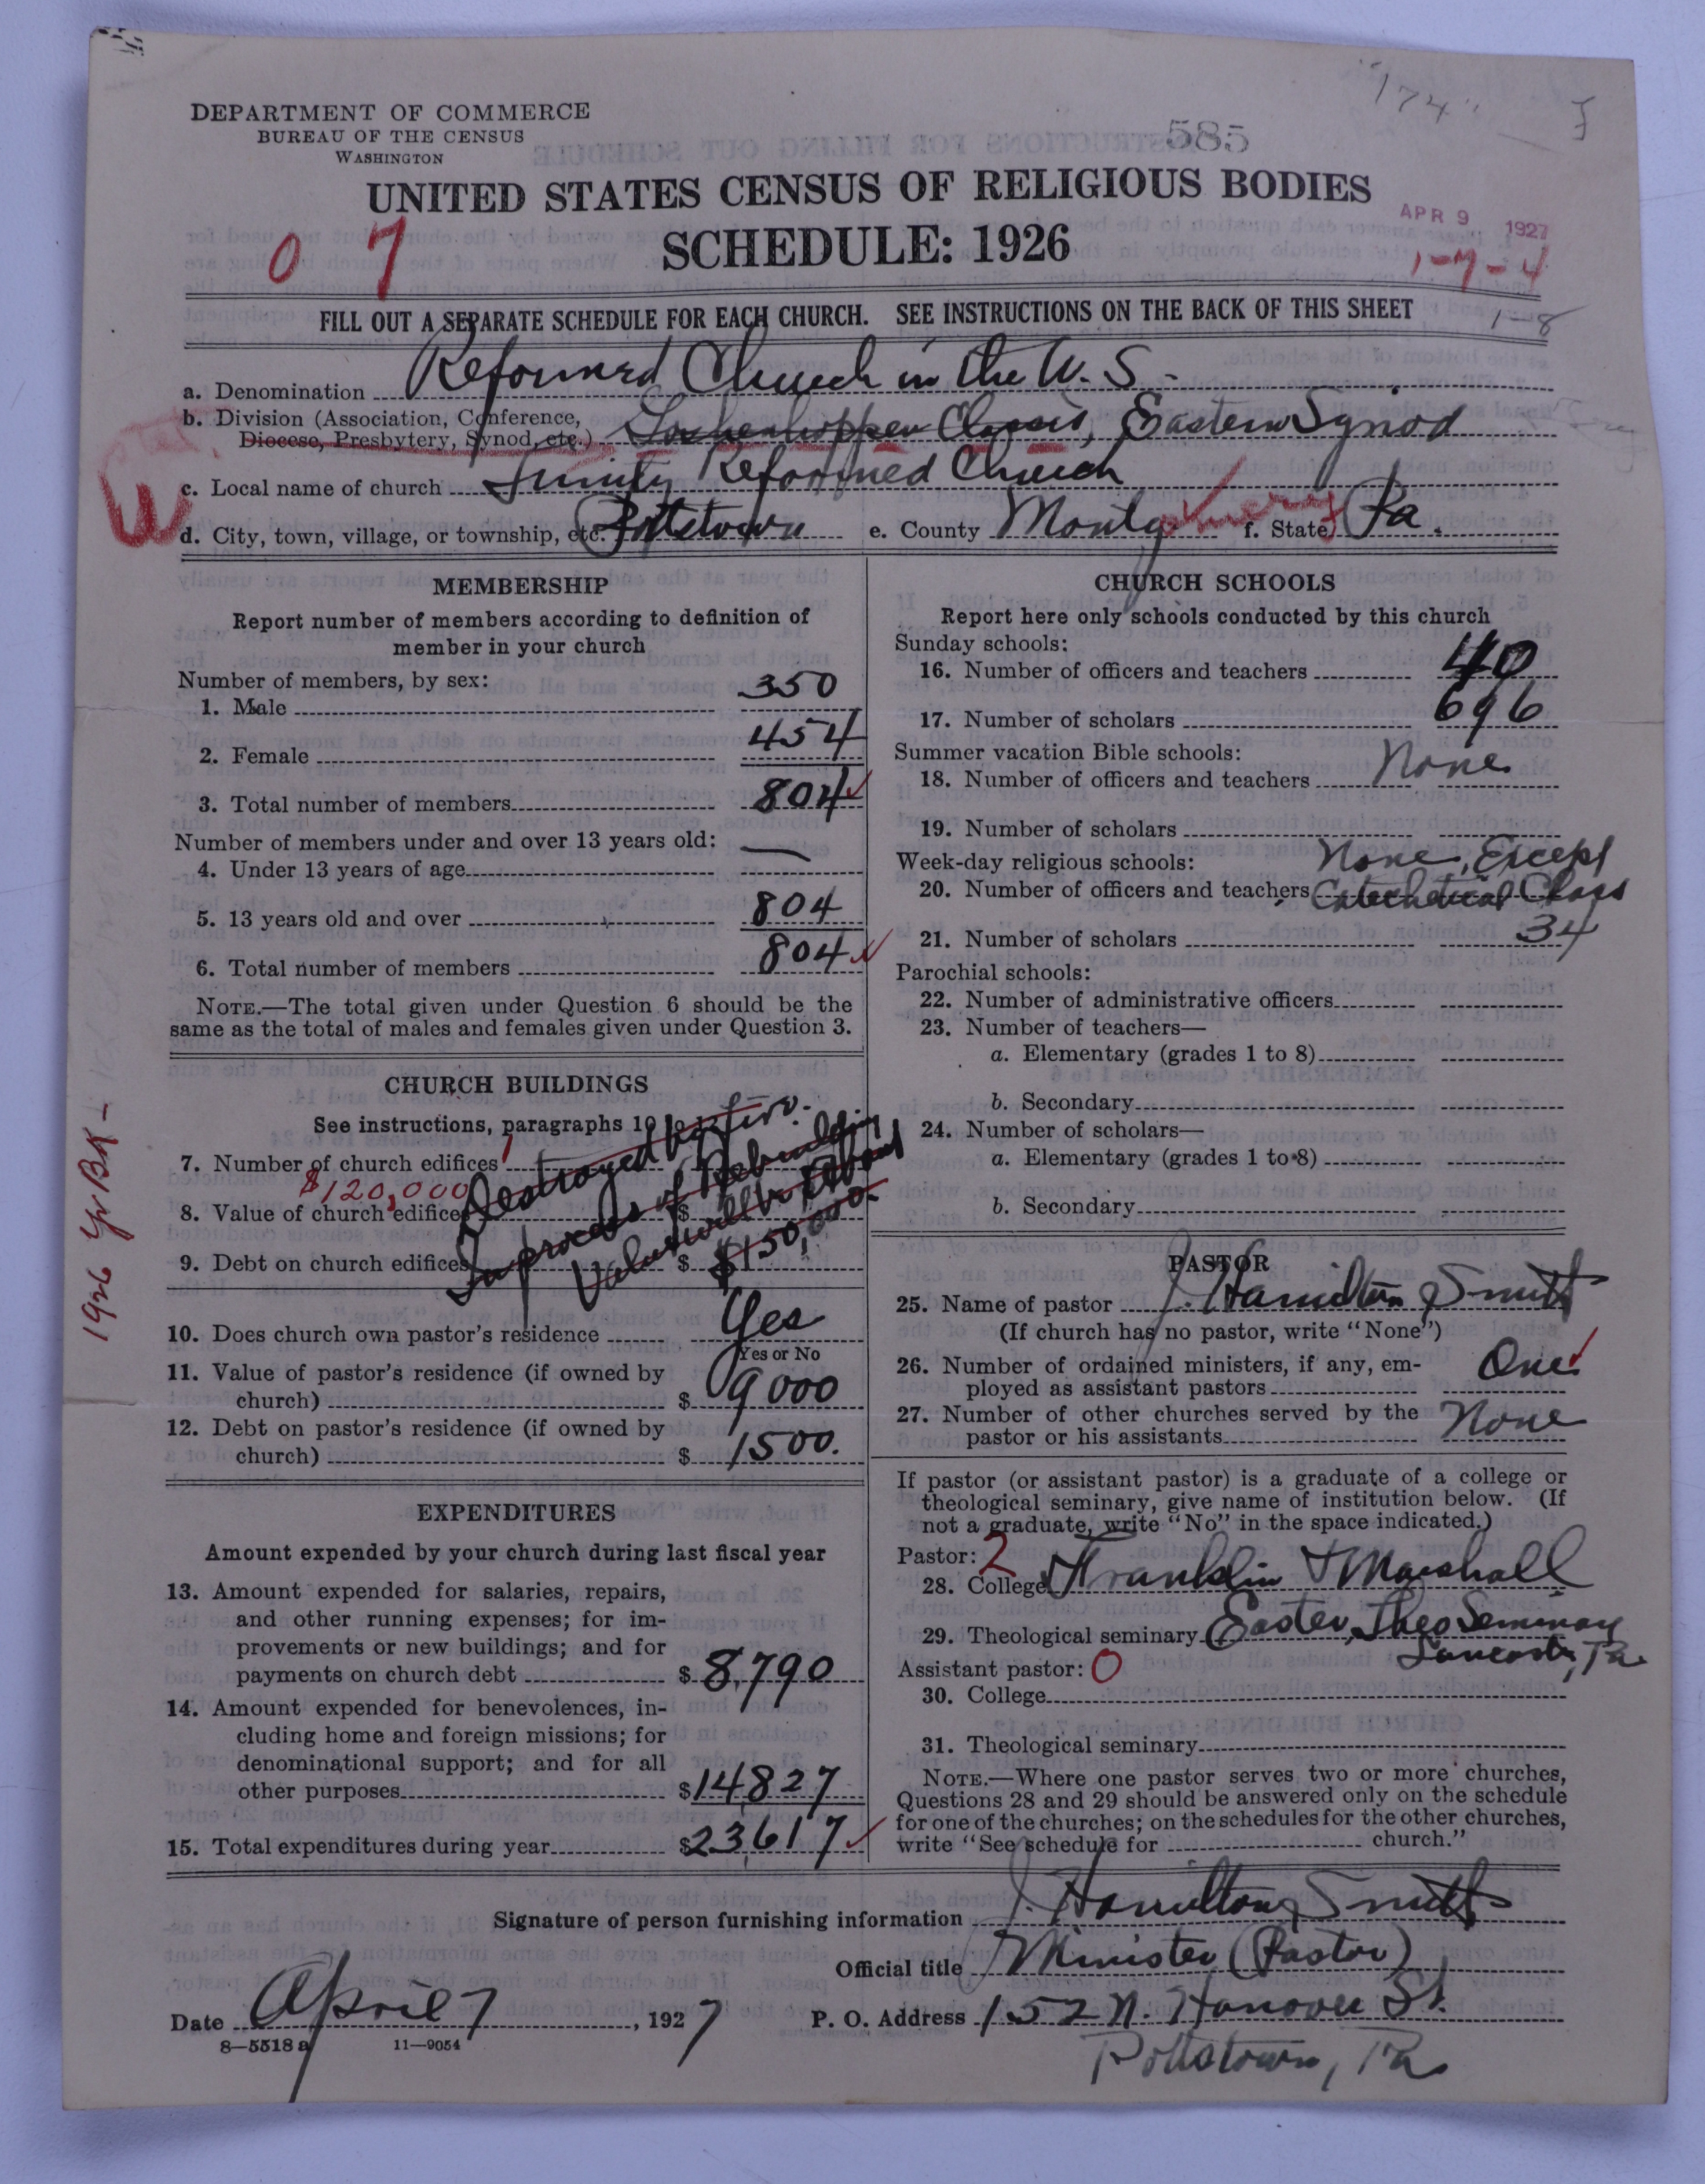 "174"
585
DEPARTMENT OF COMMERCE
BUREAU OF THE CENSUS
WASHINGTON
UNITED STATES CENSUS OF RELIGIOUS BODIES
SCHEDULE: 1926
APR 9 1927
0 7
1-7-4
1-8
FILL OUT A SEPARATE SCHEDULE FOR EACH CHURCH. SEE INSTRUCTIONS ON THE BACK OF THIS SHEET
a. Denomination Reformed Church in the U. S.
b. Division (Association, Conference, Diocese, Presbytery, Synod, etc.) Goshenhoppen Classis, Eastern Synod
c. Local name of church Trinity Reformed Church
d. City, town, village, or township, etc. Pottstown e. County Montgomery f. State Pa.
MEMBERSHIP
Report number of members according to definition of
member in your church
Number of members, by sex:
1. Male 350
2. Female 454
3. Total number of members 804
Number of members under and over 13 years old:
4. Under 13 years of age —
5. 13 years old and over 804
6. Total number of members 804
NOTE.—The total given under Question 6 should be the
same as the total of males and females given under Question 3.
CHURCH BUILDINGS
See instructions, paragraphs 10
7. Number of church edifices 1
Destroyed by fire.
$120,000
8. Value of church edifices $
In process of Rebuilding
9. Debt on church edifices $
Value will be about
$150,000.
1926 Yr BK-
10. Does church own pastor's residence Yes
Yes or No
11. Value of pastor's residence (if owned by
church) $ 9000
12. Debt on pastor's residence (if owned by
church) $ 1500.
EXPENDITURES
Amount expended by your church during last fiscal year
13. Amount expended for salaries, repairs,
and other running expenses; for im-
provements or new buildings; and for
payments on church debt $ 8,790
14. Amount expended for benevolences, in-
cluding home and foreign missions; for
denominational support; and for all
other purposes $ 14827
15. Total expenditures during year $ 23,617
CHURCH SCHOOLS
Report here only schools conducted by this church
Sunday schools:
16. Number of officers and teachers 40
17. Number of scholars 696
Summer vacation Bible schools:
18. Number of officers and teachers None
19. Number of scholars
Week-day religious schools:
None, Except
20. Number of officers and teachers Catechetical Class
21. Number of scholars 34
Parochial schools:
22. Number of administrative officers
23. Number of teachers—
a. Elementary (grades 1 to 8)
b. Secondary
24. Number of scholars—
a. Elementary (grades 1 to 8)
b. Secondary
PASTOR
25. Name of pastor J. Hamilton Smith
(If church has no pastor, write "None")
26. Number of ordained ministers, if any, em-
ployed as assistant pastors One
27. Number of other churches served by the
pastor or his assistants None
If pastor (or assistant pastor) is a graduate of a college or
theological seminary, give name of institution below. (If
not a graduate, write "No" in the space indicated.)
Pastor: 2
28. College Franklin & Marshall
29. Theological seminary Easter, Theo Seminary
Lancaster, Pa
Assistant pastor: 0
30. College
31. Theological seminary
NOTE.—Where one pastor serves two or more churches,
Questions 28 and 29 should be answered only on the schedule
for one of the churches; on the schedules for the other churches,
write "See schedule for church."
Signature of person furnishing information J. Hamilton Smith
Official title Minister (Pastor)
Date April 7, 1927 P. O. Address 152 N. Hanover St.
8—5518 a 11—9054
Pottstown, Pa